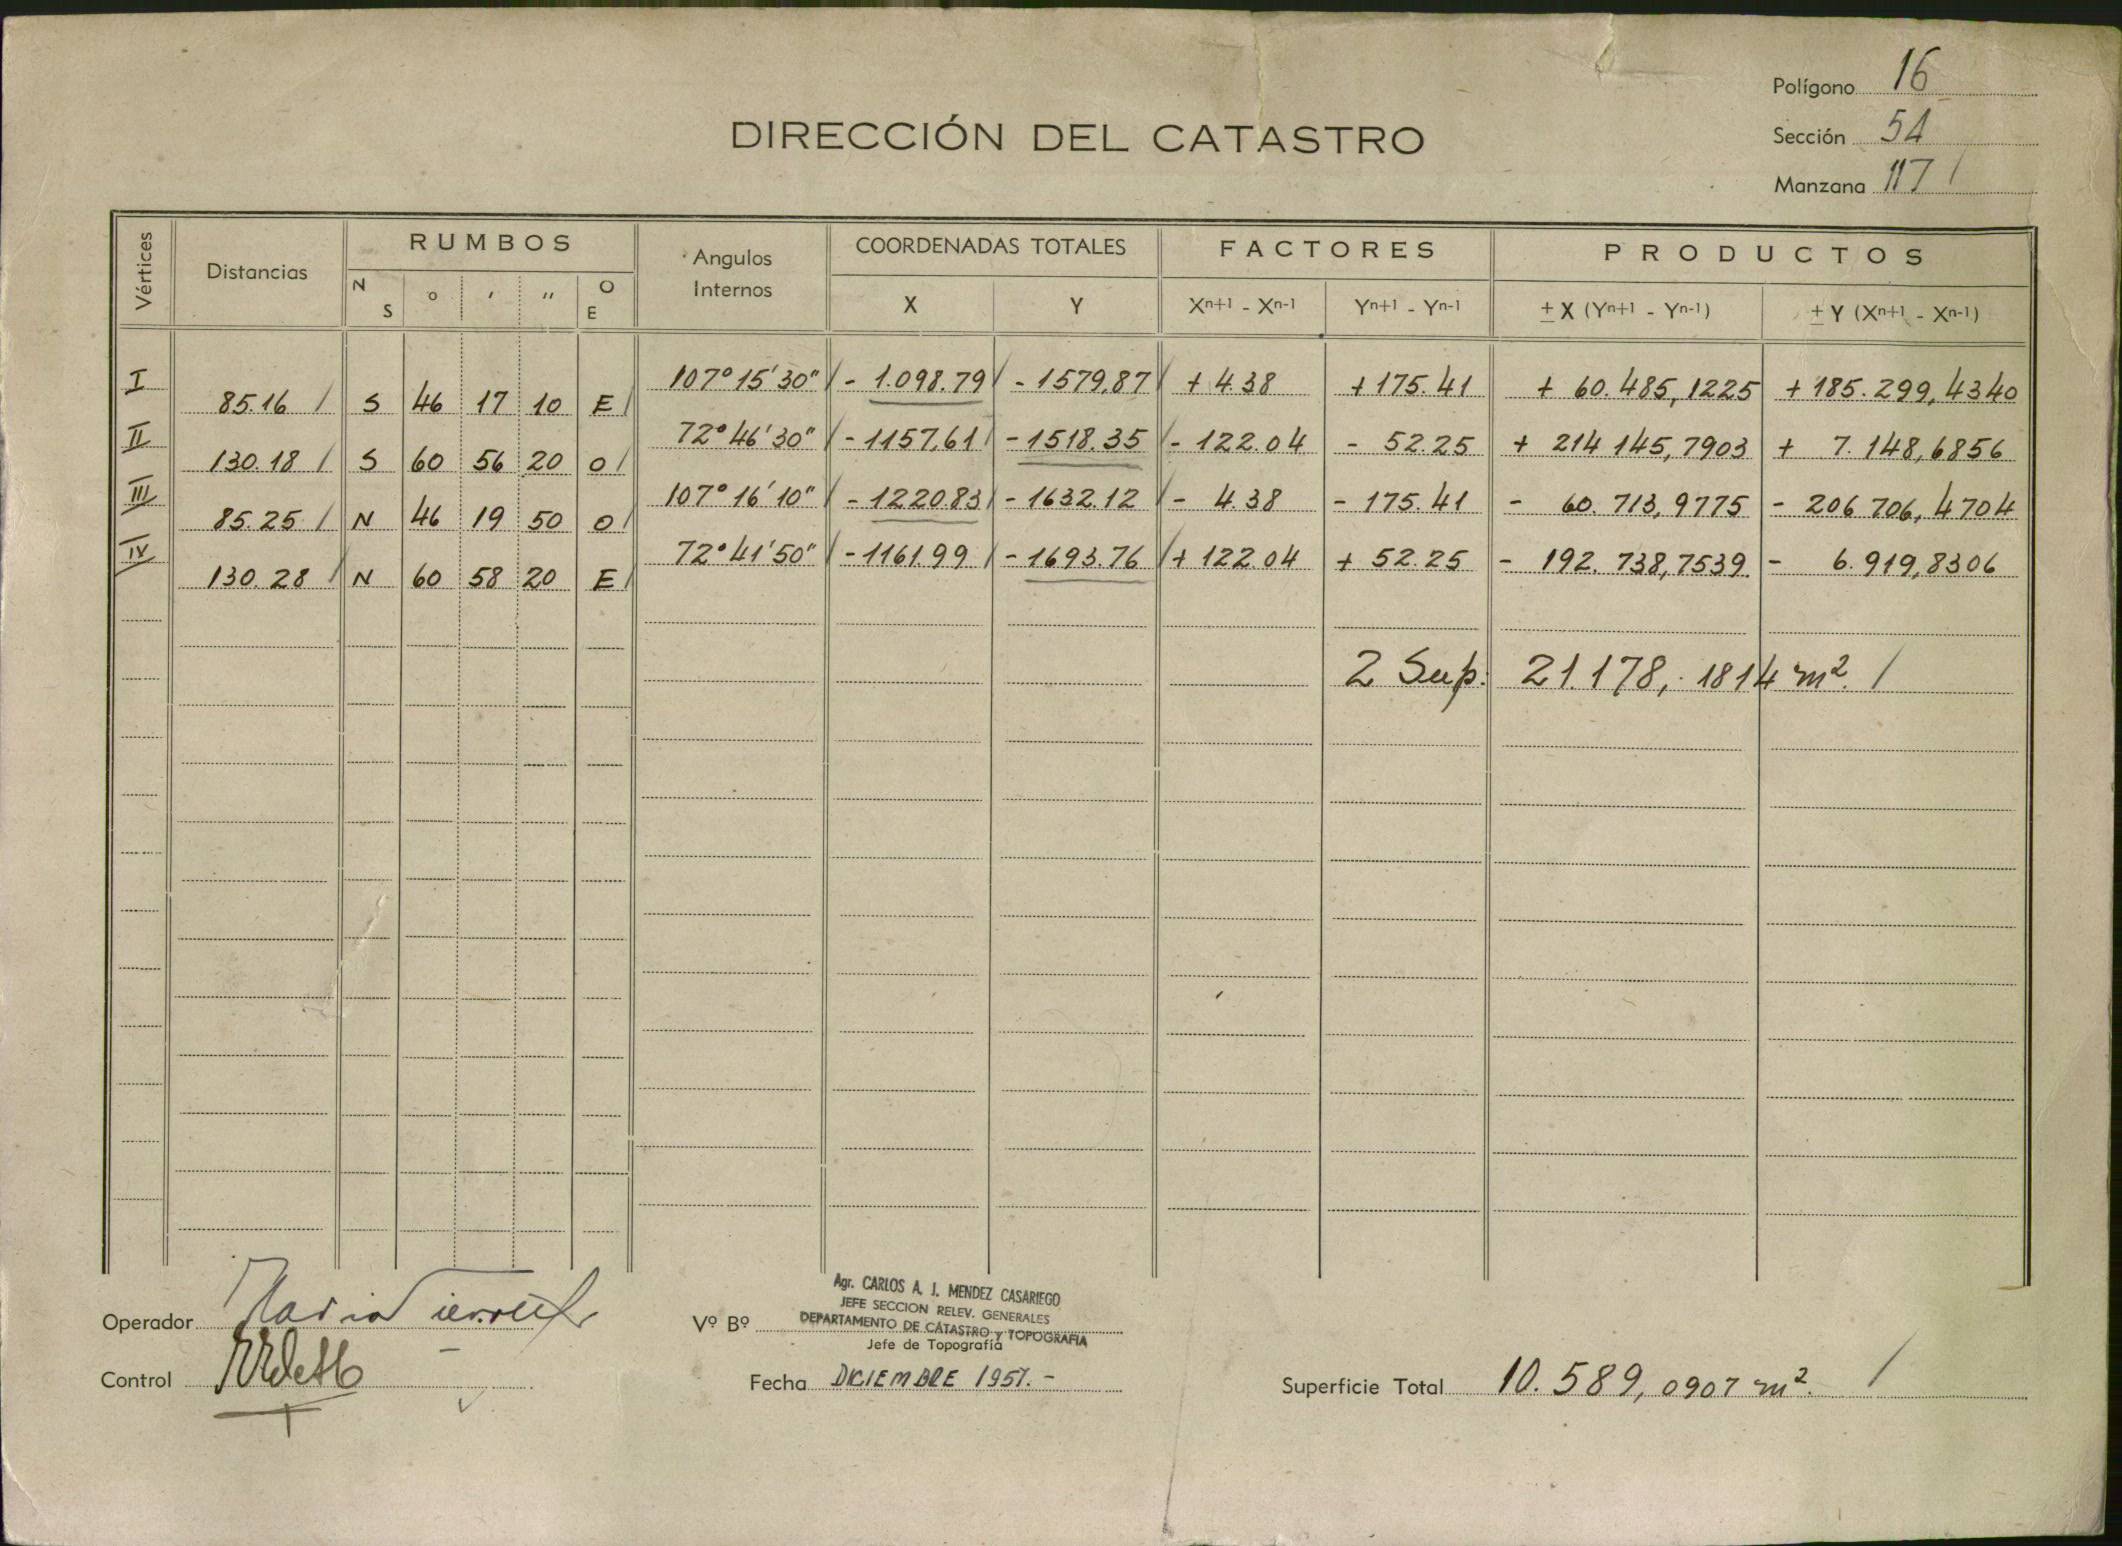 Polígono 16
DIRECCIÓN DEL CATASTRO
Sección 54
Manzana 117 /
Vértices
Distancias
RUMBOS
N S
o
'
"
O E
Angulos Internos
COORDENADAS TOTALES
X
Y
FACTORES
Xn+1 - Xn-1
Yn+1 - Yn-1
PRODUCTOS
± X (Yn+1 - Yn-1)
± Y (Xn+1 - Xn-1)
I 107° 15' 30" / - 1.098.79 / - 1579,87 / + 4.38 + 175.41 + 60.485,1225 + 185.299,4340
85.16 / S 46 17 10 E /
II 72° 46' 30" / - 1157,61 / - 1518.35 / - 122.04 - 52.25 + 214 145,7903 + 7.148,6856
130.18 / S 60 56 20 O /
III 107° 16' 10" / - 1220.83 / - 1632.12 / - 4.38 - 175.41 - 60.713,9775 - 206 706,4704
85.25 / N 46 19 50 O /
IV 72° 41' 50" / - 1161.99 / - 1693.76 / + 122.04 + 52.25 - 192.738,7539 - 6.919,8306
130.28 / N 60 58 20 E /
2 Sup: 21.178,1814 m². /
Agr. CARLOS A. J. MENDEZ CASARIEGO
JEFE SECCION RELEV. GENERALES
DEPARTAMENTO DE CATASTRO y TOPOGRAFIA
Operador
Vº Bº
Jefe de Topografía
Control
Fecha DICIEMBRE 1957.-
Superficie Total 10.589,0907 m². /